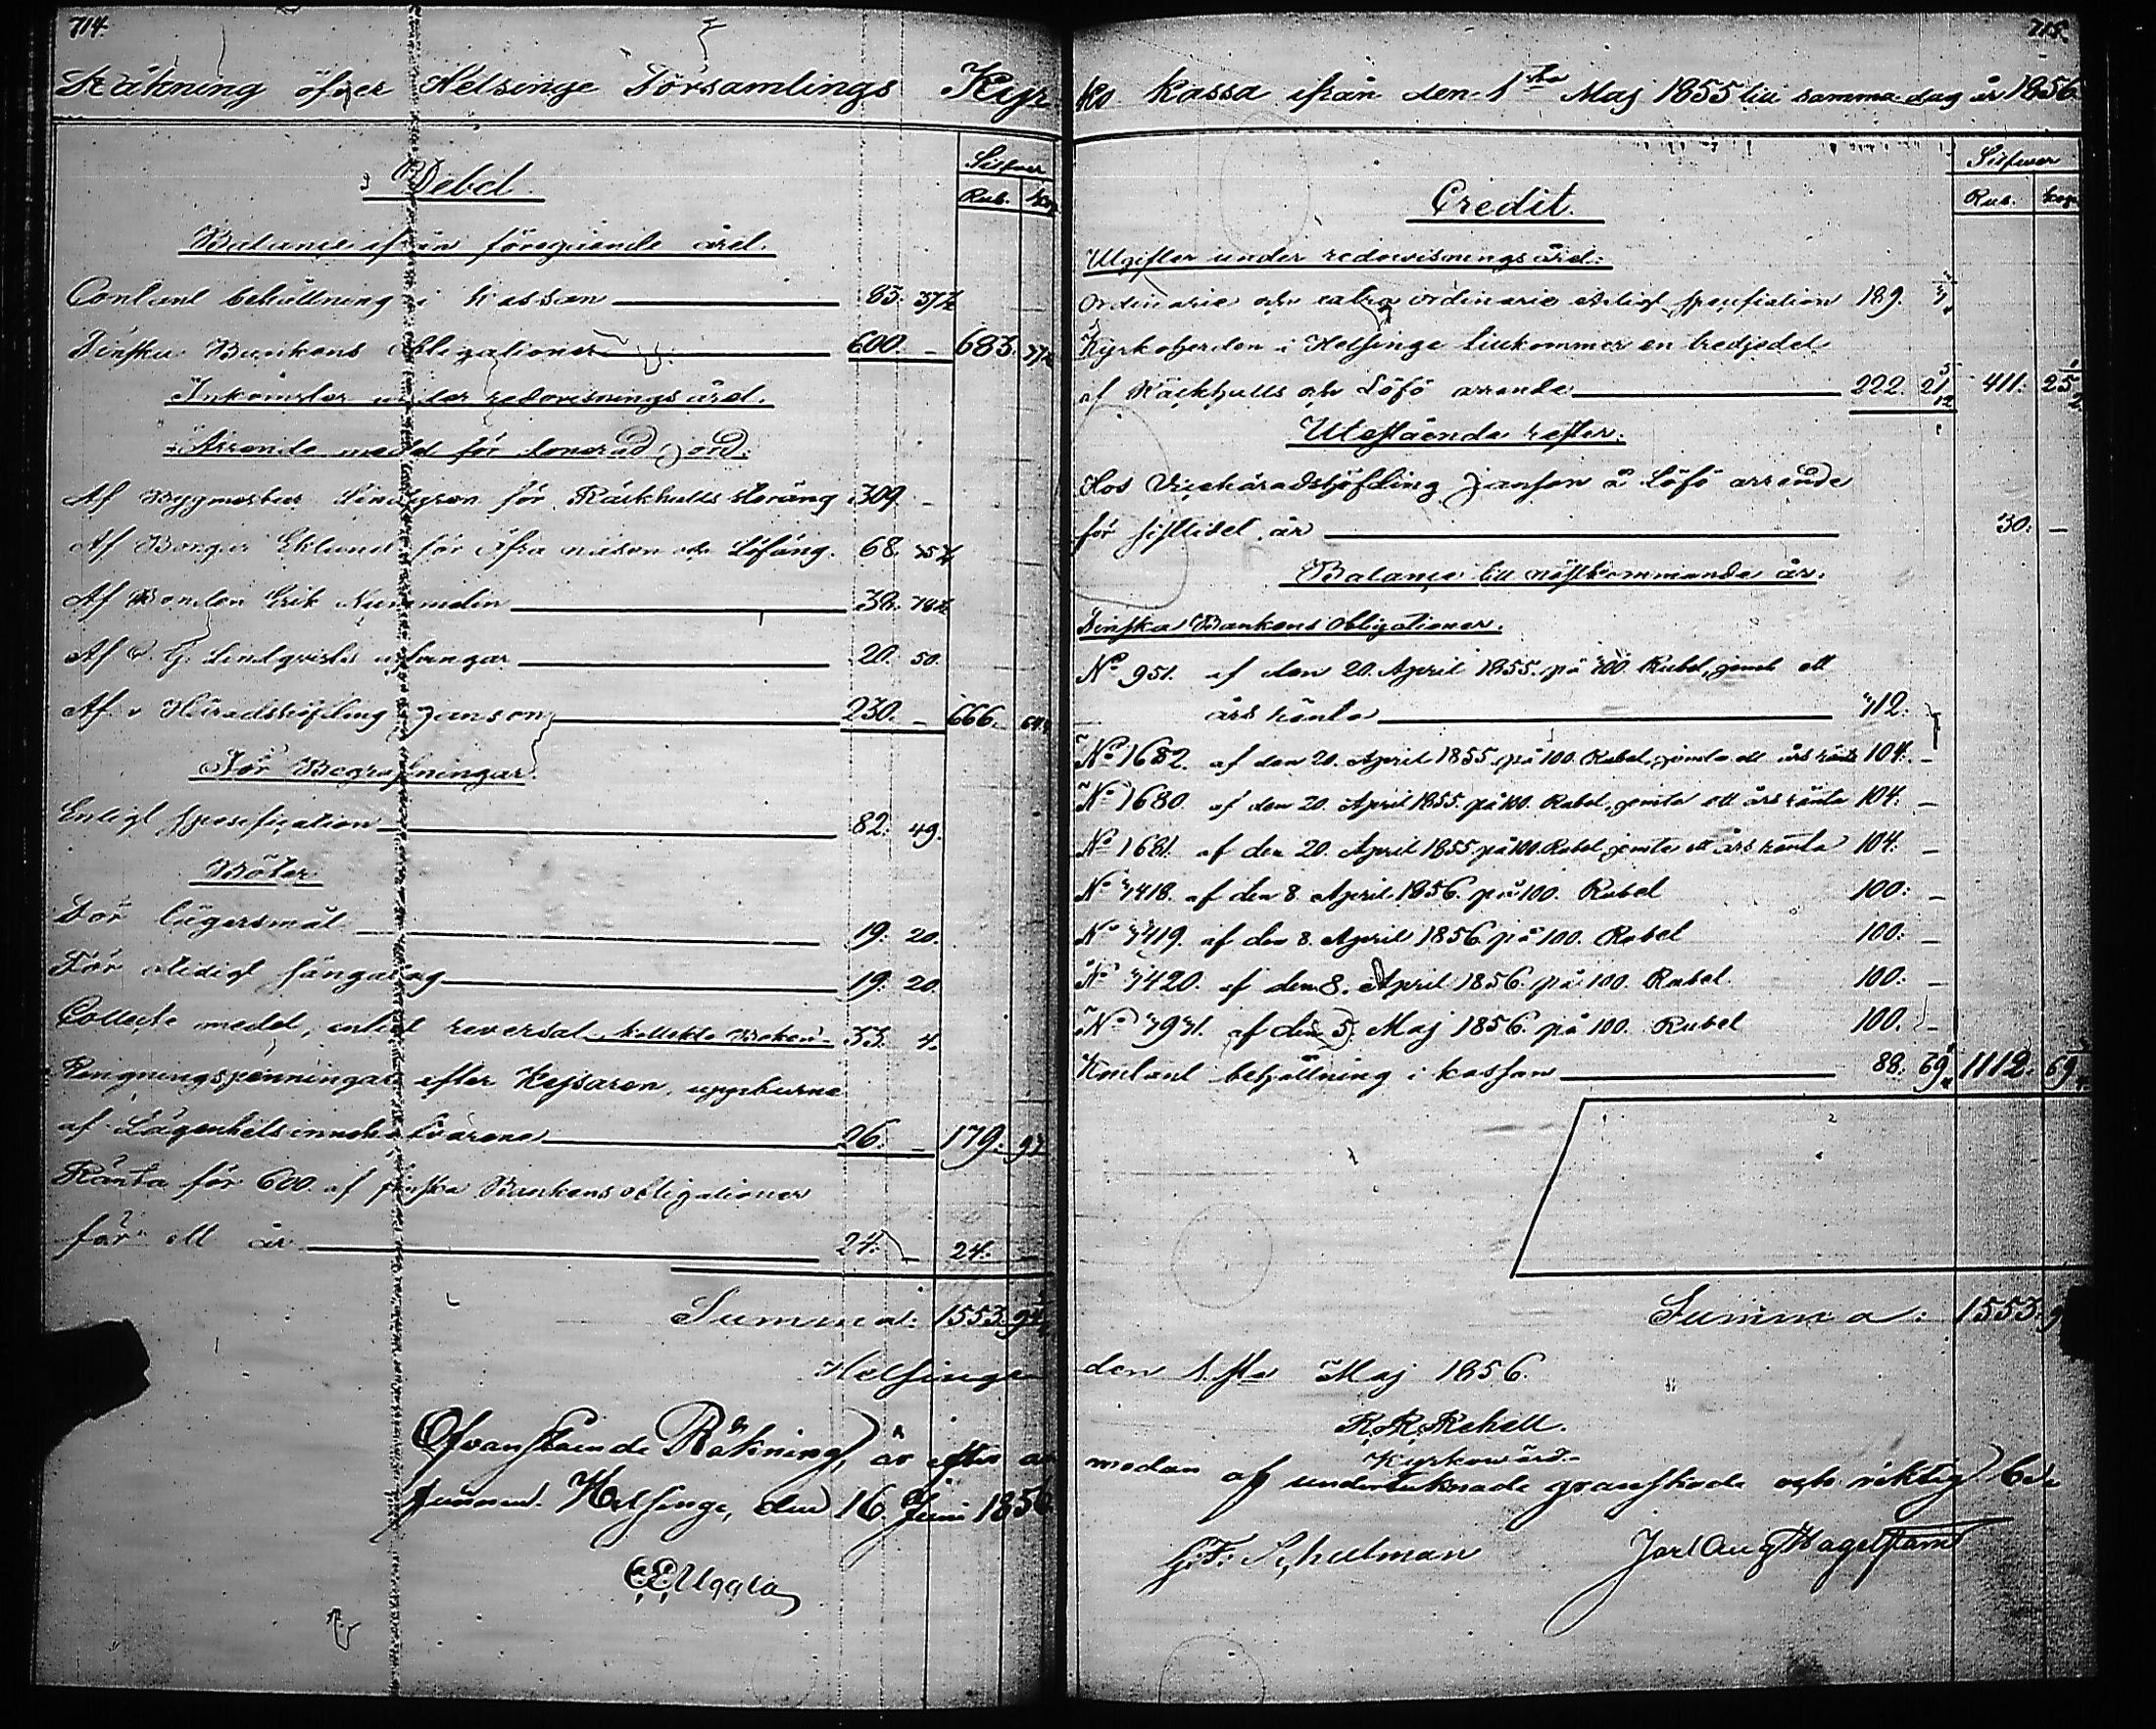 714.
Räkning öfver Helsinge Församlings Kyr
Silfver
Debet.
Rub. Kop
Balance ifrån föregående året.
Contant behållning i Kassan 83. 37½
Finska Bankens Obligationer 600. — 683. 37½
Inkomster under redovisningsåret.
Arrende medel för donerad jord.
Af Byggmästar Lindgren för Räckhalls storäng 309. —
Af Borgar Eklund för Löfäng. 68. 35
Af Bonden Erik Nummelin 38.
Af Lindqvists arfvingar 20. 50.
Af v. Häradshöfding Janson 230. — 666. 64
För Begrafningar.
Enligt specification 82. 49.
Böter
För lägersmål 19. 20.
För otidigt sängalag 19. 20.
Collecte medel, enligt reversal, kollekte Boken 33. 4.
Ringningspenningar efter Kejsaren, uppburne
af Lägenhetsinnehafvarena 26. — 179. 93
Ränta för 600. af finska Bankens obligationer
för ett år 24. — 24. —
Summa: 1553. 94
Helsinge
Ofvanstående Räkning, är efter an
funnen. Helsinge, den 16. Juni 1856
C E Uggla
715.
ko Kassa ifrån den 1sta Maj 1855 till samma dag år 1856.
Silfver
Credit.
Rub. Kop
Utgifter under redovisningsåret:
Ordinarie och extra ordinarie enligt specification 189.
Kyrkoherden i Helsinge tillkommer en tredjedel
af Räckhalls och Löfö arrende 222. 21 5/12 411. 25
Utestående rester.
Hos Vicehäradshöfding Janson å Löfö arrende
för sistlidet år 30: —
Balance till nästkommande år.
Finska Bankens Obligationer.
No 951. af den 20. April 1855. på Rubel, jemte ett
års ränta 412: —
No 1682. af den 20. April 1855. på 100. Rubel, jemte ett års ränta 104. —
No 1680. af den 20. April 1855. på 100. Rubel, jemte ett års ränta 104: —
No 1681. af den 20. April 1855. på 100. Rubel jemte ett års ränta 104: —
No 418. af den 8. April 1856. på 100. Rubel 100: —
No 419. af den 8. April 1856. på 100. Rubel 100: —
No 420. af den 8. April 1856. på 100. Rubel. 100: —
No af den 5. Maj 1856. på 100. Rubel 100. —
Kontant behållning i kassan 88. 69 1112. 69
Summa: 1553. 9
den 1.sta Maj 1856.
K. R. Rehell.
Kyrkowärd.
medan af undertecknade granskade och riktig be
G. F. Schulman Jarl Aug Hagelstam